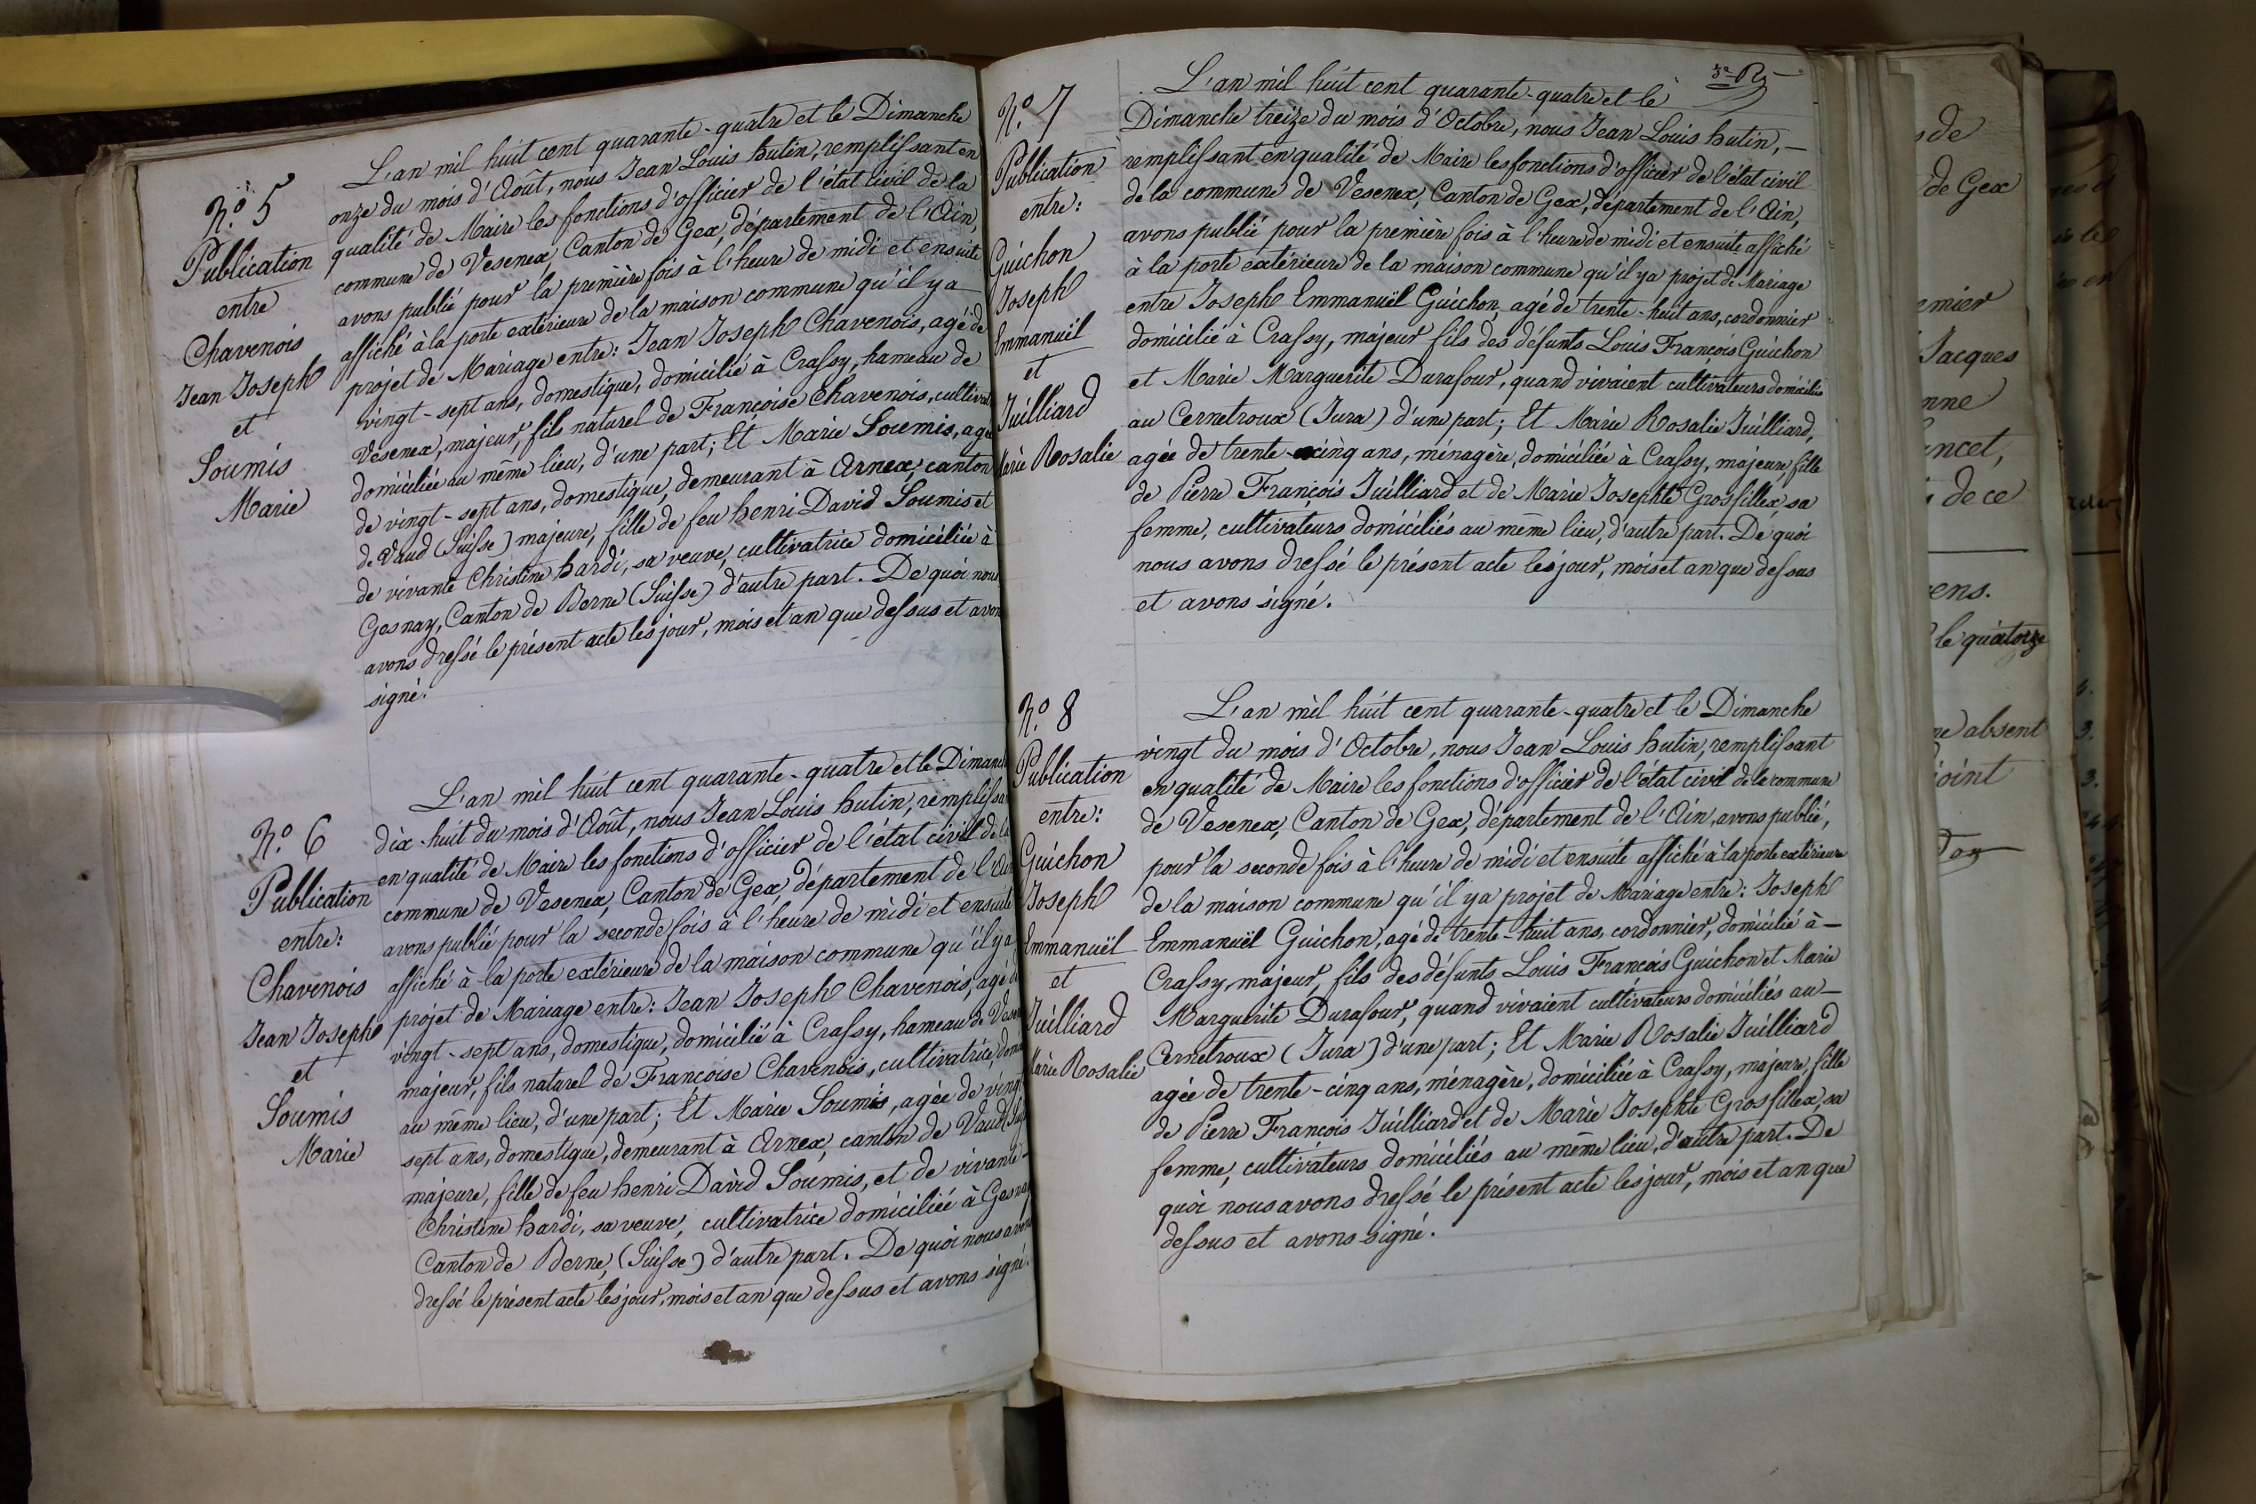 N.º 5
Publication
entre
Chavenois
Jean Joseph
et
Soumis
Marie
L'an mil huit cent quarante-quatre et le Dimanche
onze du mois d'Août, nous Jean Louis hutin, remplissant en
qualité de Maire les fonctions d'officier de l'état civil de la
commune de Vesenex, Canton de Gex, département de l'Ain,
avons publié pour la première fois à l'heure de midi et ensuite
affiché à la porte extérieure de la maison commune qu'il y a
projet de Mariage entre: Jean Joseph Chavenois, agé de
vingt-sept ans, domestique, domicilié à Crassy, hameau de
Vesenex, majeur, fils naturel de Françoise Chavenois, cultivat
domiciliée au même lieu, d'une part; Et Marie Soumis, agée
de vingt-sept ans, domestique, demeurant à Arnex, canton
de Vaud (Suisse) majeure, fille de feu henri David Soumis et
de vivante Christine hardi, sa veuve, cultivatrice domiciliée à
Gesnay, Canton de Berne (Suisse) d'autre part. De quoi nous
avons dressé le présent acte les jour, mois et an que dessus et avons
signé.
N.º 6
Publication
entre:
Chavenois
Jean Joseph
et
Soumis
Marie
L'an mil huit cent quarante-quatre et le Dimanch
dix-huit du mois d'Août, nous Jean Louis hutin, remplissan
en qualité de Maire les fonctions d'officier de l'état civil de la
commune de Vesenex, Canton de Gex, département de l'Ain
avons publié pour la seconde fois à l'heure de midi et ensuite
affiché à la porte extérieure de la maison commune qu'il y a
projet de Mariage entre: Jean Joseph Chavenois, agé de
vingt-sept ans, domestique, domicilié à Crassy, hameau de Vesen
majeur, fils naturel de Françoise Chavenois, cultivatrice, dom
au même lieu, d'une part; Et Marie Soumis, agée de vingt
sept ans, domestique, demeurant à Arnex, canton de Vaud (Sui
majeure, fille de feu henri David Soumis, et de vivante
Christine hardi, sa veuve, cultivatrice domiciliée à Gesnay
Canton de Berne, (Suisse) d'autre part. De quoi nous avons
dressé le présent acte les jour, mois et an que dessus et avons signé.
N.º 7
Publication
entre:
Guichon
Joseph
Emmanuël
et
Juilliard
Marie Rosalie
L'an mil huit cent quarante-quatre et le
Dimanche treize du mois d'Octobre, nous Jean Louis hutin,
remplissant en qualité de Maire les fonctions d'officier de l'état civil
de la commune de Vesenex, Canton de Gex, département de l'Ain,
avons publié pour la première fois à l'heure de midi et ensuite affiché
à la porte extérieure de la maison commune qu'il y a projet de Mariage
entre Joseph Emmanuël Guichon, agé de trente-huit ans, cordonnier
domicilié à Crassy, majeur fils des défunts Louis François Guichon
et Marie Marguerite Durafour, quand vivaient cultivateurs domiciliés
au Cernetroux (Jura) d'une part; Et Marie Rosalie Juilliard,
agée de trente-cinq ans, ménagère, domiciliée à Crassy, majeure, fille
de Pierre François Juilliard et de Marie Josephte Grosfillex, sa
femme, cultivateurs domiciliés au même lieu, d'autre part. De quoi
nous avons dressé le présent acte les jour, mois et an que dessus
et avons signé.
N.º 8
Publication
entre:
Guichon
Joseph
Emmanuël
et
Juilliard
Marie Rosalie
L'an mil huit cent quarante-quatre et le Dimanche
vingt du mois d'Octobre, nous Jean Louis hutin, remplissant
en qualité de Maire les fonctions d'officier de l'état civil de la commune
de Vesenex, Canton de Gex, département de l'Ain, avons publié,
pour la seconde fois à l'heure de midi et ensuite affiché à la porte extérieure
de la maison commune qu'il y a projet de Mariage entre: Joseph
Emmanuël Guichon, agé de trente-huit ans, cordonnier, domicilié à
Crassy, majeur, fils des défunts Louis François Guichon et Marie
Marguerite Durafour, quand vivaient cultivateurs domiciliés au
Cernetroux (Jura) d'une part; Et Marie Rosalie Juilliard
agée de trente-cinq ans, ménagère, domiciliée à Crassy, majeure, fille
de Pierre François Juilliard et de Marie Josephte Grosfillex, sa
femme, cultivateurs domiciliés au même lieu, d'autre part. De
quoi nous avons dressé le présent acte les jour, mois et an que
dessus et avons signé.
de
de Gex
emier
Jacques
nne
ncet,
de ce
ens.
le quatorze
absent
joint